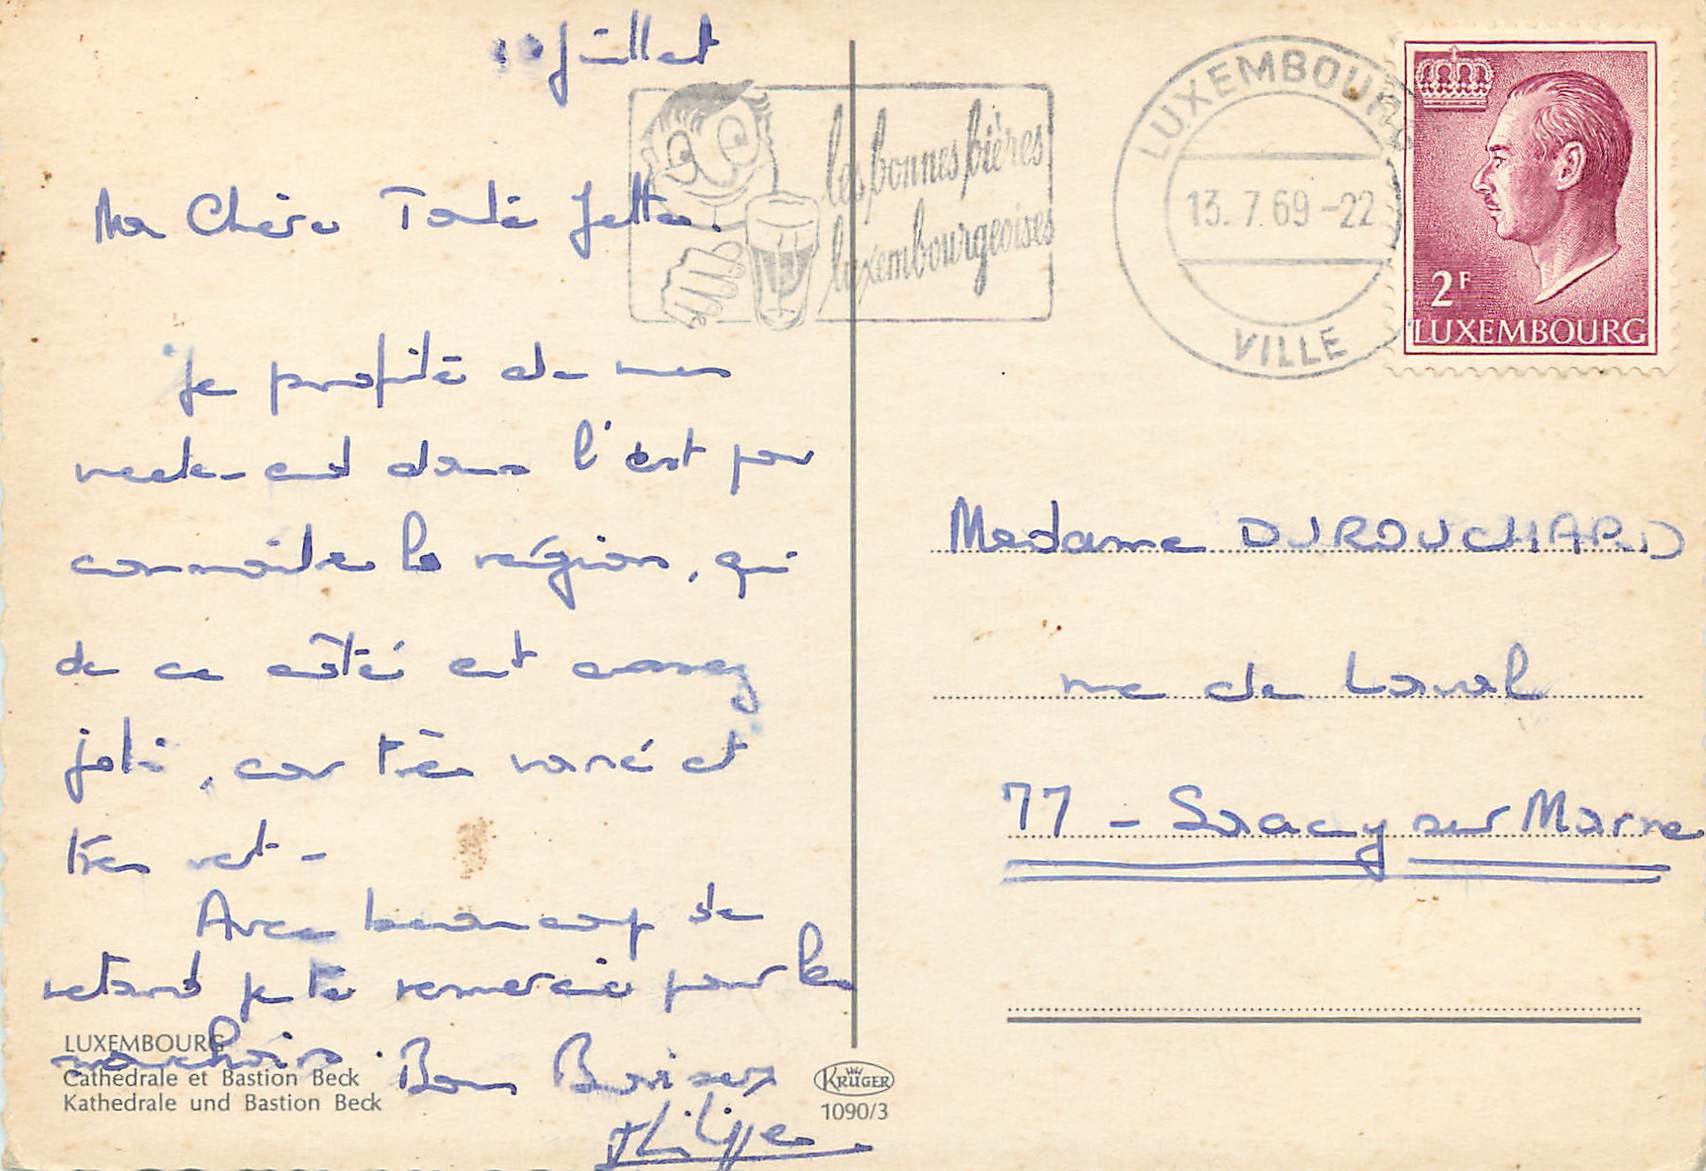 10 Juillet
Ma Chère Tante Jette
Je profite de mes
week-end dans l'est pour
connaître la région, qui
de ce côté est assez
joli, car très varié et
très vert -
Avec beaucoup de
retard je te remercie pour les
mouchoirs. Bons Baisers
Philippe
les bonnes bières
luxembourgeoises
LUXEMBOURG
13.7.69-22
VILLE
2F
LUXEMBOURG
Madame DUROUCHARD
rue de Laval
77 - Saacy sur Marne
LUXEMBOURG
Cathédrale et Bastion Beck
Kathedrale und Bastion Beck
KRÜGER
1090/3